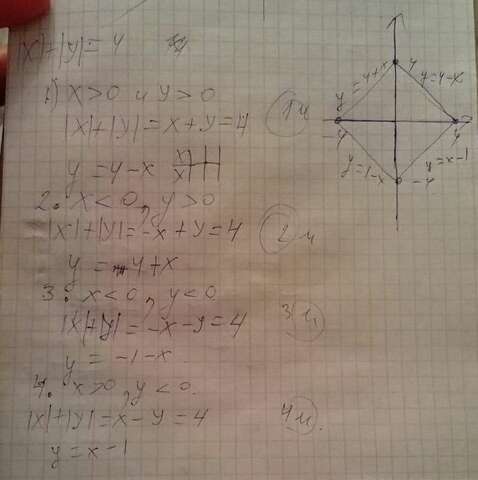 |x|+|y|=4
1) x>0 и y>0
|x|+|y|=x+y=4
1ч
y=4-x
2. x<0, y>0
|x|+|y|=-x+y=4
2ч
y=4+x
3. x<0, y<0
|x|+|y|=-x-y=4
3ч
y=-1-x
4. x>0, y<0.
|x|+|y|=x-y=4
4ч.
y=x-1
4
y=4+x
y=4-x
-4
4
y=1-x
y=x-1
-4